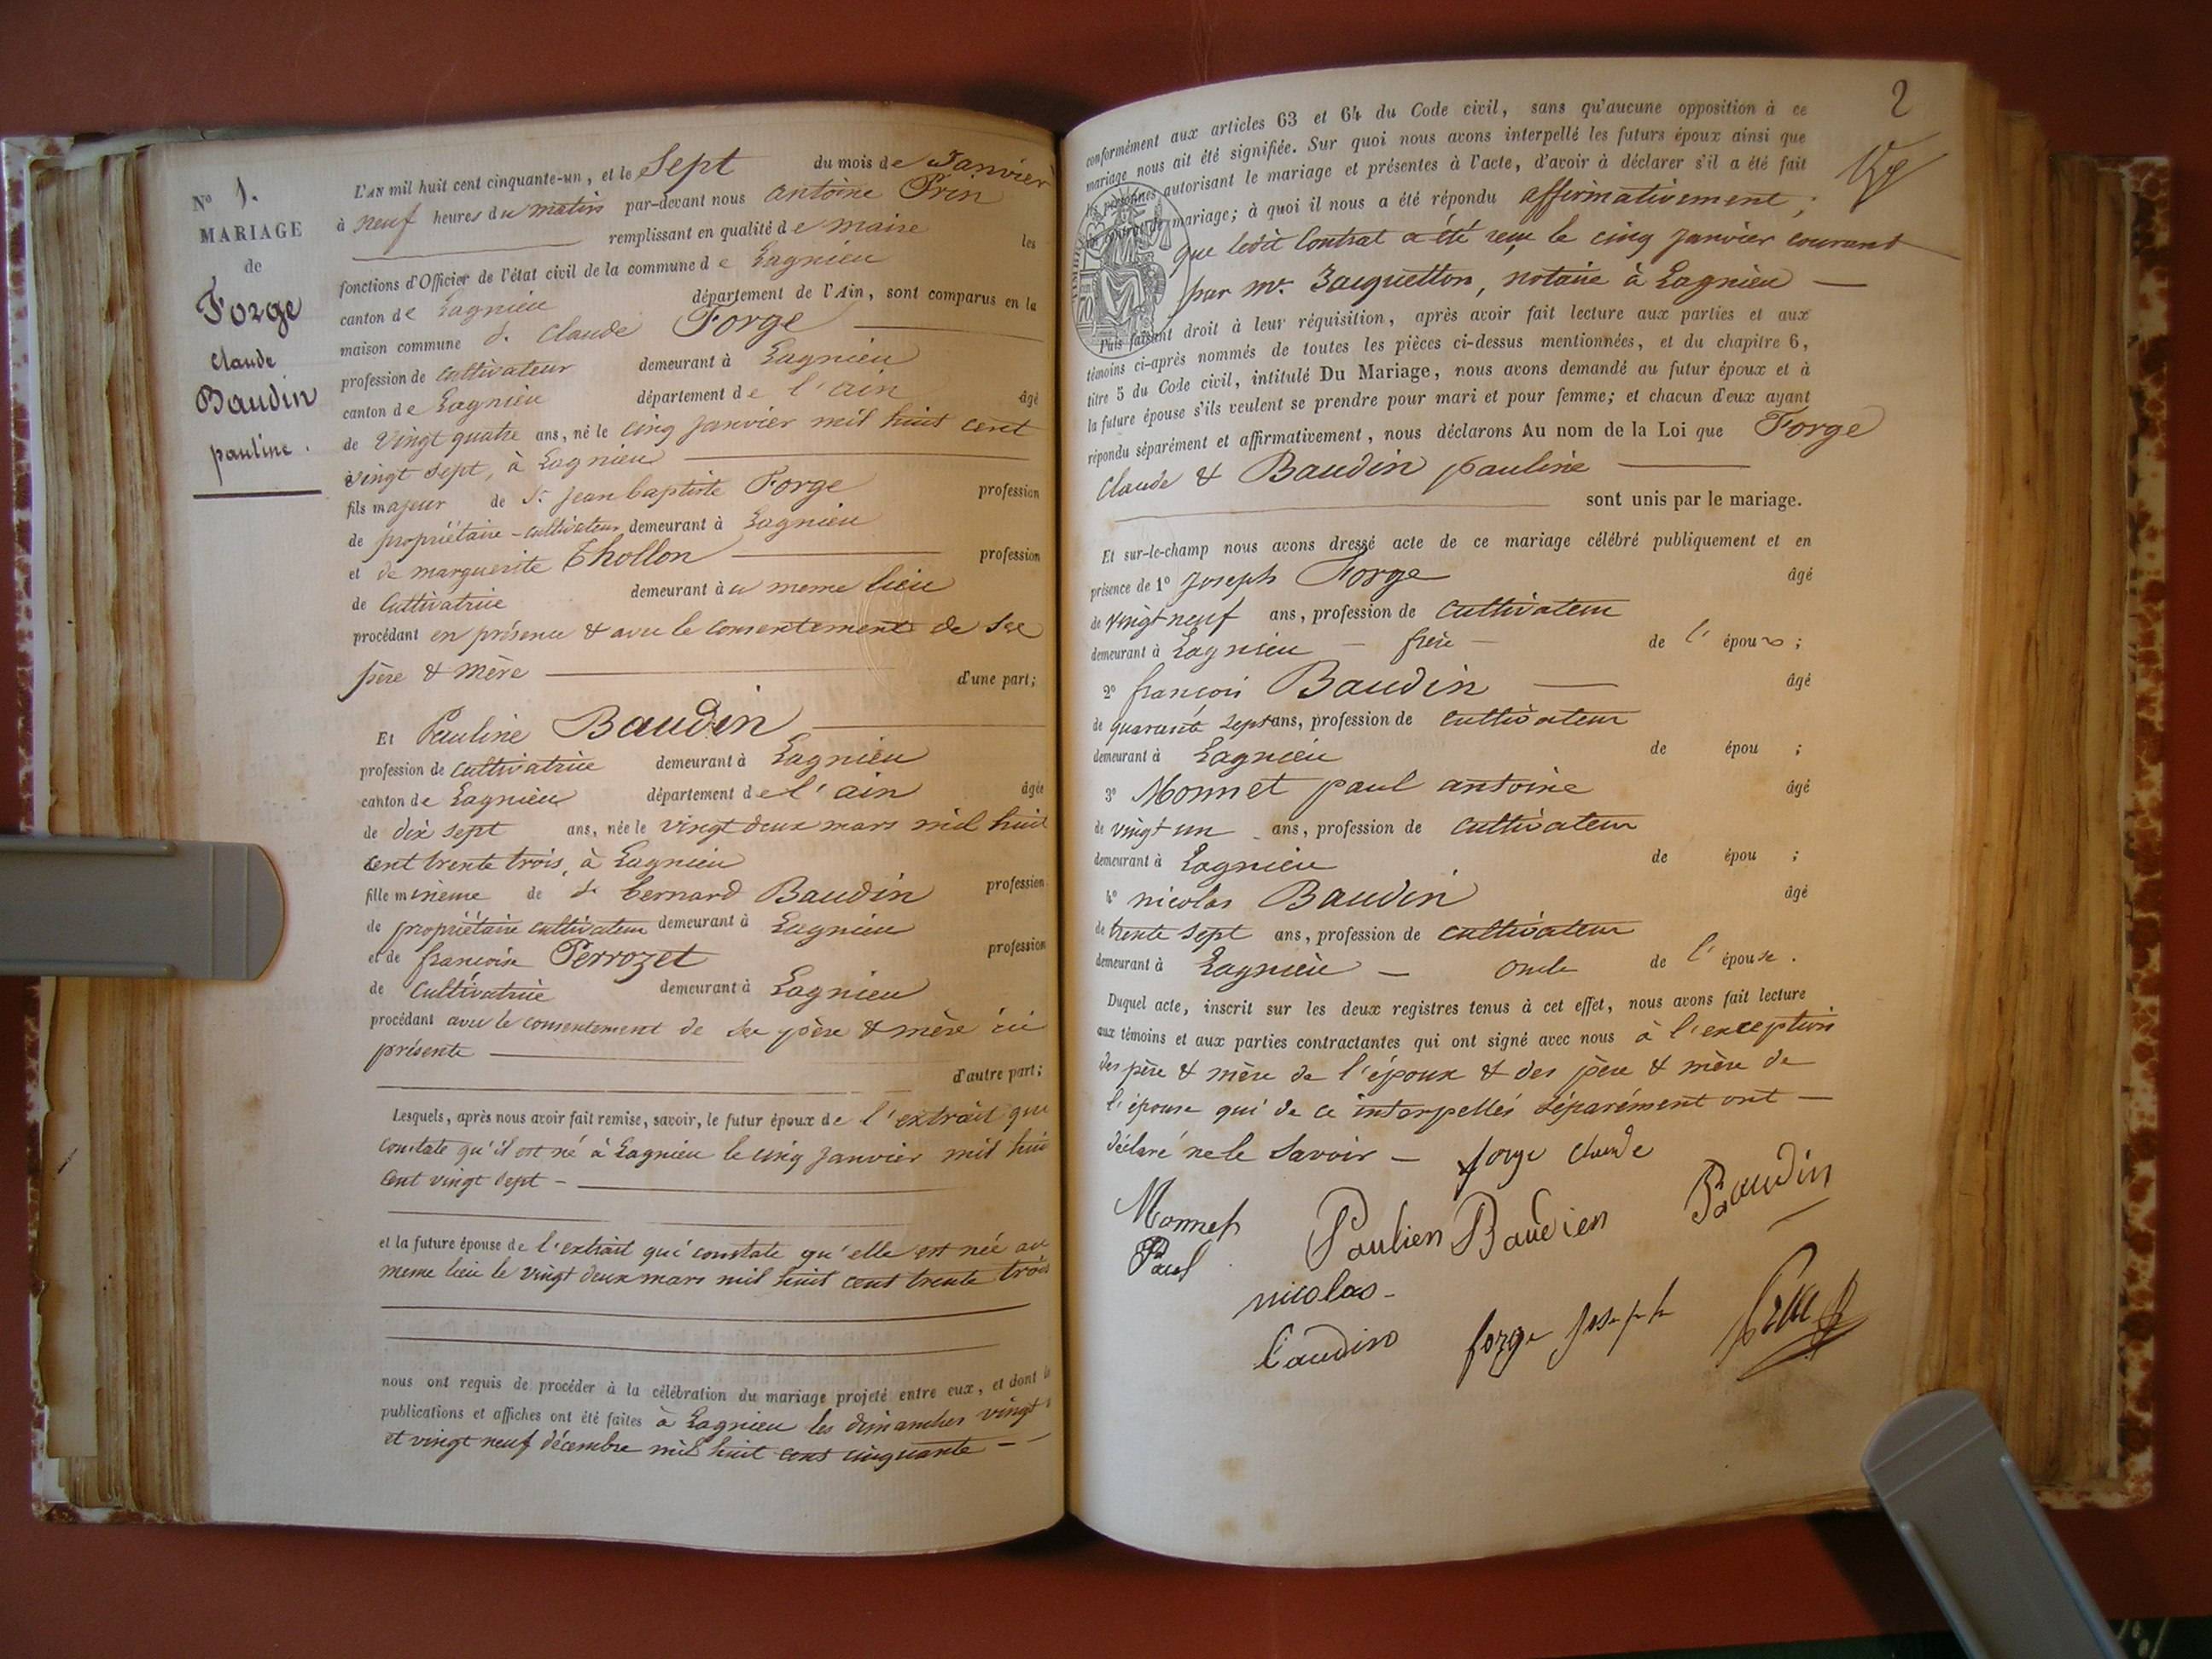 N° 1.
MARIAGE
de
Forge
Claude
Baudin
pauline.
L'AN mil huit cent cinquante-un, et le Sept du mois de Janvier
à neuf heures du matin par-devant nous antoine Prin
remplissant en qualité de maire les
fonctions d'Officier de l'état civil de la commune de Lagnieu
canton de Lagnieu département de l'Ain, sont comparus en la
maison commune d. Claude Forge
profession de cultivateur demeurant à Lagnieu
canton de Lagnieu département de l'ain âgé
de Vingt quatre ans, né le cinq janvier mil huit cent
vingt sept, à Lagnieu
fils majeur de Sr. Jean baptiste Forge profession
de propriétaire-cultivateur demeurant à Lagnieu
et de marguerite Thollon profession
de Cultivatrice demeurant à u meme lieu
procédant en présence & avec le consentement de ses
père & mère d'une part;
Et Pauline Baudin
profession de cultivatrice demeurant à Lagnieu
canton de Lagnieu département de l'ain âgée
de dix sept ans, née le vingt deux mars mil huit
cent trente trois, à Lagnieu
fille mineure de Sr bernard Baudin profession
de propriétaire cultivateur demeurant à Lagnieu
et de francoise Perrozet profession
de cultivatrice demeurant à Lagnieu
procédant avec le consentement de ses père & mère ici
présents
d'autre part;
Lesquels, après nous avoir fait remise, savoir, le futur époux de l'extrait qui
constate qu'il est né à Lagnieu le cinq janvier mil huit
cent vingt sept -
et la future épouse de l'extrait qui constate qu'elle est née au
meme lieu le vingt deux mars mil huit cent trente trois
nous ont requis de procéder à la célébration du mariage projeté entre eux, et dont les
publications et affiches ont été faites à Lagnieu les dimanches vingt
et vingt neuf décembre mil huit cent cinquante -
2
conformément aux articles 63 et 64 du Code civil, sans qu'aucune opposition à ce
mariage nous ait été signifiée. Sur quoi nous avons interpellé les futurs époux ainsi que
les personnes autorisant le mariage et présentes à l'acte, d'avoir à déclarer s'il a été fait
un contrat de mariage; à quoi il nous a été répondu affirmativement;
que ledit Contrat a été reçu le cinq janvier courant
par Mr. Jacquetton, notaire à Lagnieu -
Puis faisant droit à leur réquisition, après avoir fait lecture aux parties et aux
témoins ci-après nommés de toutes les pièces ci-dessus mentionnées, et du chapitre 6,
titre 5 du Code civil, intitulé Du Mariage, nous avons demandé au futur époux et à
la future épouse s'ils veulent se prendre pour mari et pour femme; et chacun d'eux ayant
répondu séparément et affirmativement, nous déclarons Au nom de la Loi que Forge
Claude & Baudin pauline
sont unis par le mariage.
Et sur-le-champ nous avons dressé acte de ce mariage célébré publiquement et en
présence de 1° Joseph Forge âgé
de vingt neuf ans, profession de cultivateur
demeurant à Lagnieu - frère - de l'époux;
2° françois Baudin âgé
de quarante sept ans, profession de cultivateur
demeurant à Lagnieu de épou ;
3° Monnet paul antoine âgé
de vingt un ans, profession de cultivateur
demeurant à Lagnieu de épou ;
4° nicolas Baudin âgé
de trente sept ans, profession de cultivateur
demeurant à Lagnieu - oncle de l'épouse.
Duquel acte, inscrit sur les deux registres tenus à cet effet, nous avons fait lecture
aux témoins et aux parties contractantes qui ont signé avec nous à l'exception
des père & mère de l'époux & des père & mère de
l'épouse qui de ce interpellés séparément ont -
déclaré ne le savoir - forge claude
Monnet Paulien Baudien Baudin
Paul
nicolas
baudin forge Joseph Prin